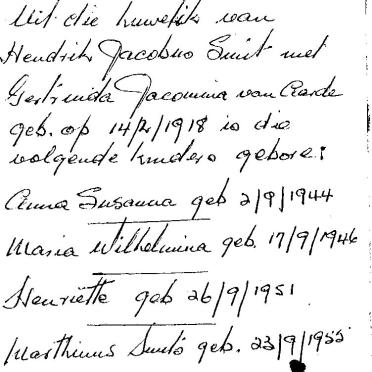 Uit die huwelik van
Hendrik Jacobus Smit met
Gertruida Jacomina van Aarde
geb. op 14/2/1918 is die
volgende kinders gebore:
Anna Susanna geb 2/9/1944
Maria Wilhelmina geb. 17/9/1946
Henriëtte geb 26/9/1951
Marthinus geb. 23/9/1955